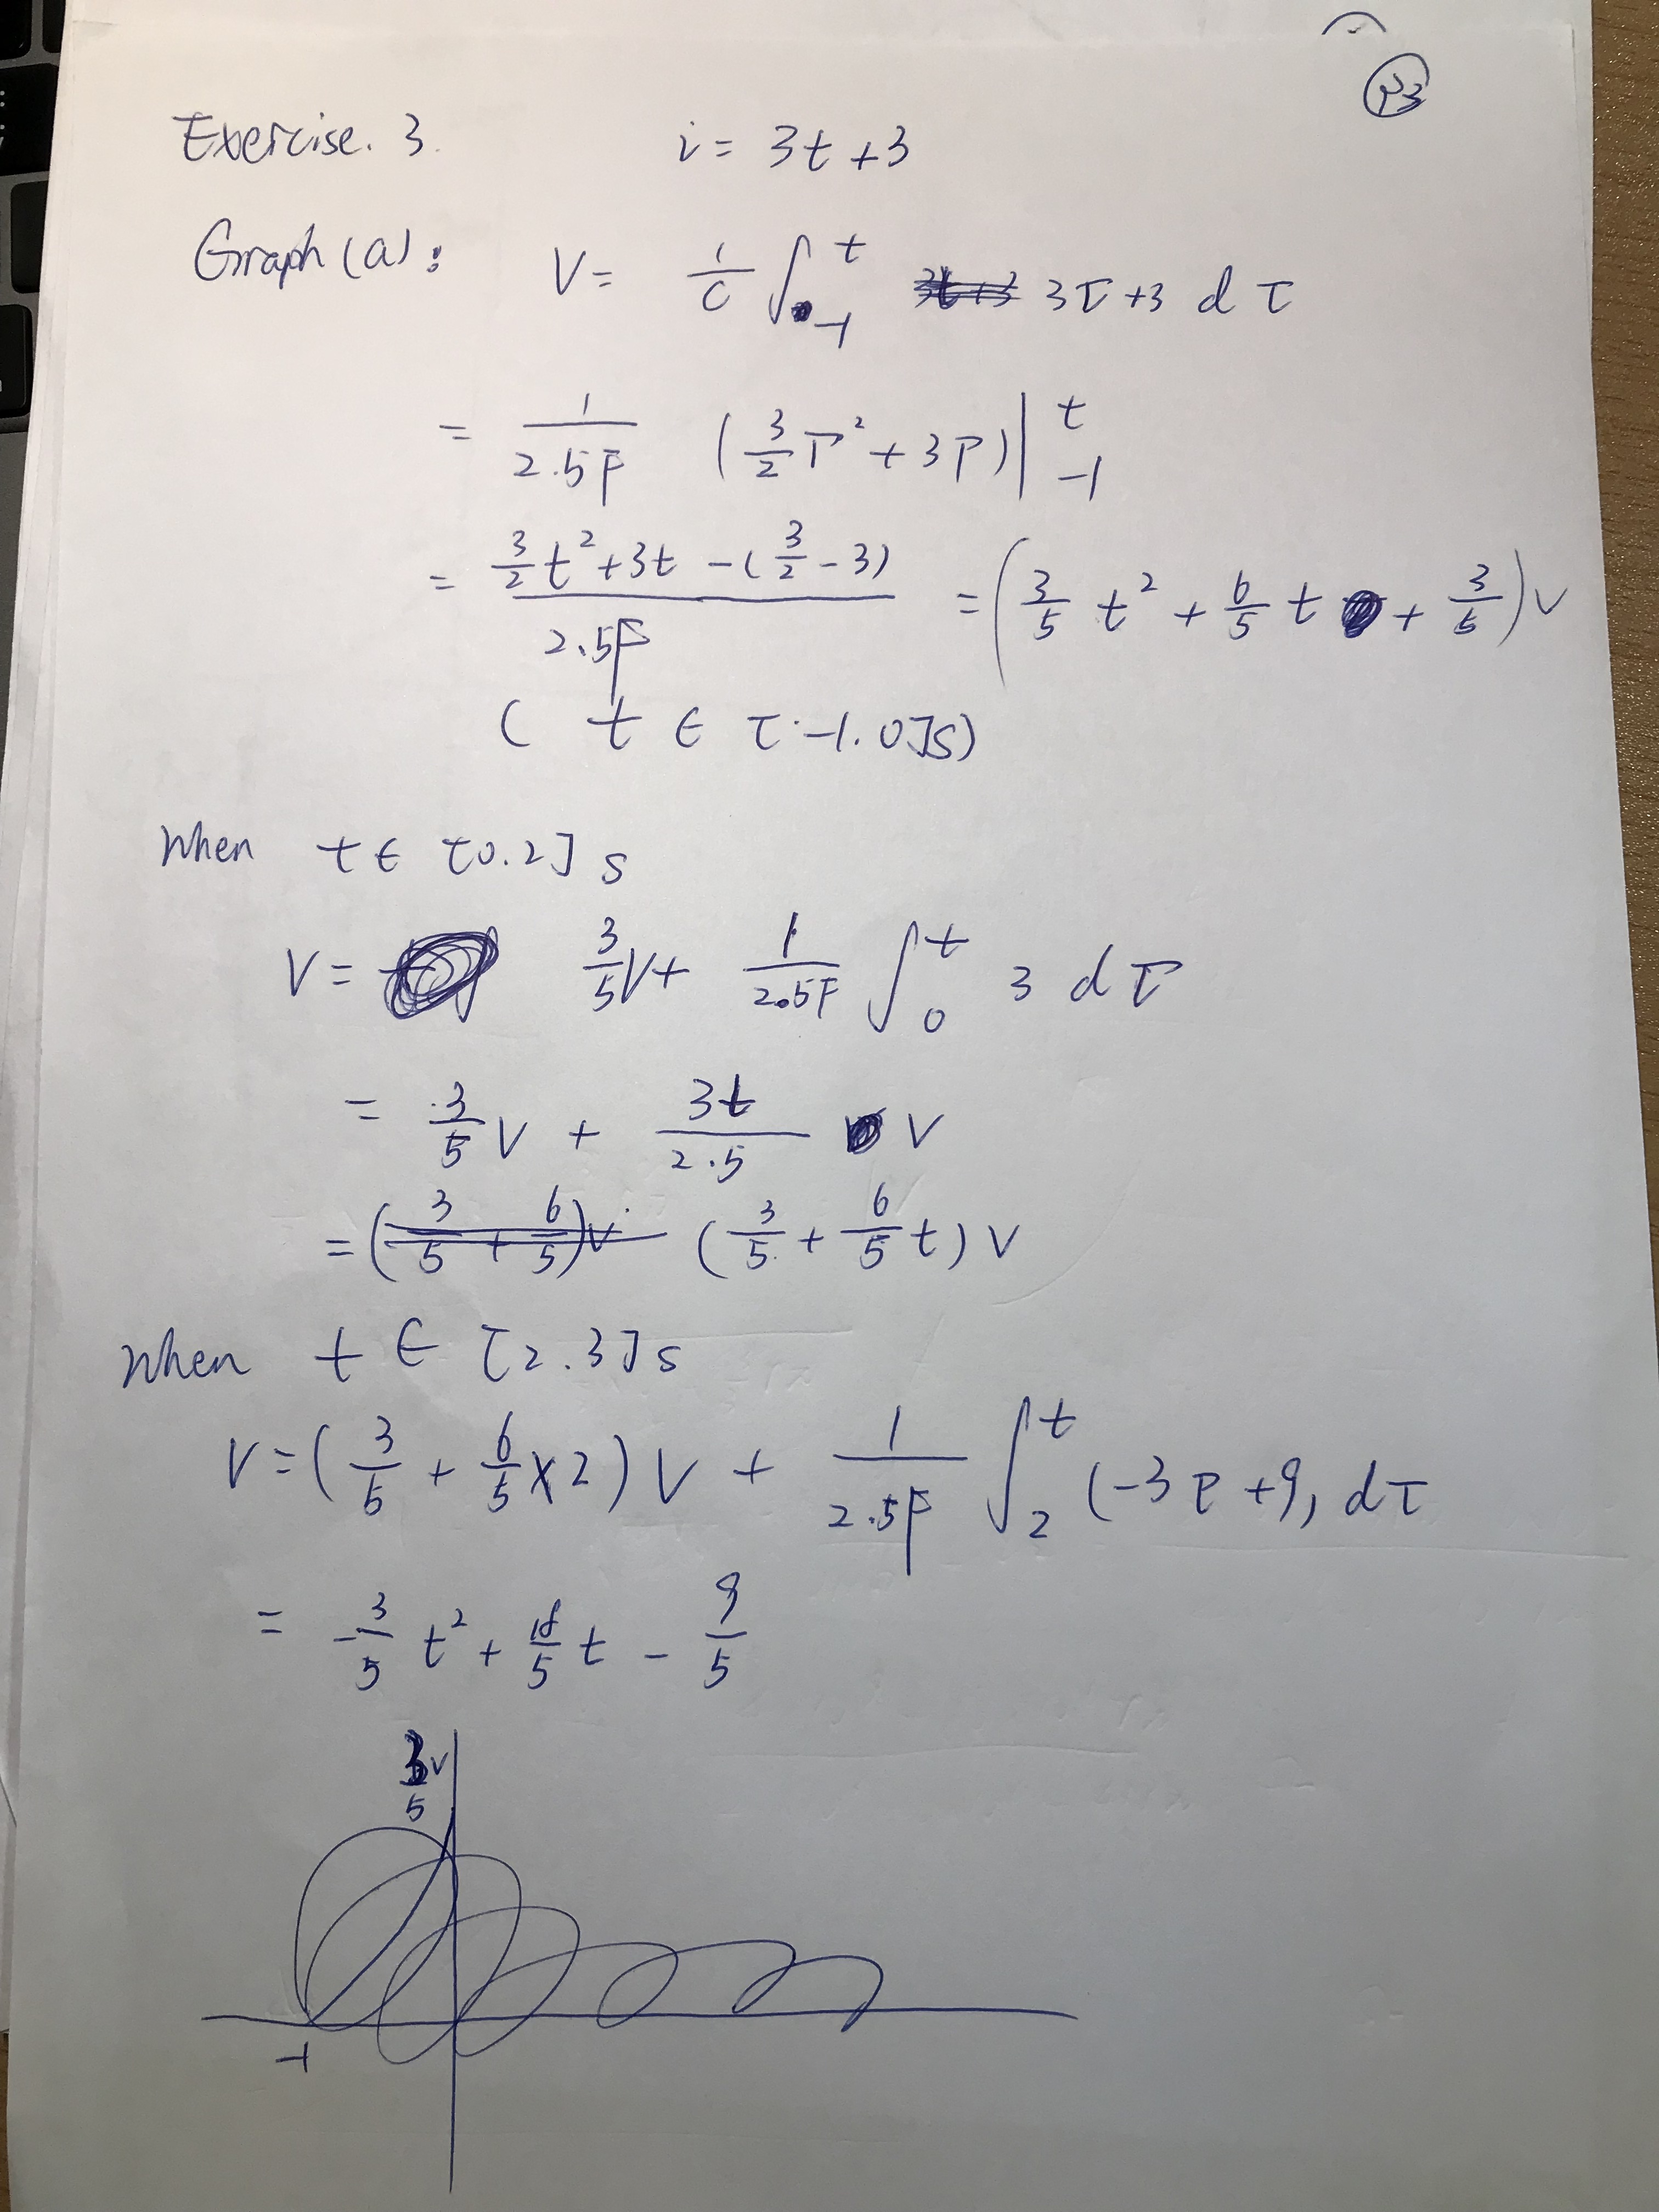 P3
Exercise. 3 i = 3t + 3
Graph (a): V = 1/C ∫_-1^t 3t+3 3τ + 3 dτ
= 1/2.5F (3/2 τ² + 3τ)|_-1^t
= (3/2 t² + 3t - (3/2 - 3))/2.5F = (3/5 t² + 6/5 t + 3/5) V
( t ∈ [-1.0]s)
When t ∈ [0.2] s
V = 3/5 V + 1/2.5F ∫_0^t 3 dτ
= 3/5 V + 3t/2.5 V
= (3/5 + 6/5)V (3/5 + 6/5 t) V
When t ∈ [2.3] s
V = (3/5 + 6/5 × 2) V + 1/2.5F ∫_2^t (-3τ + 9) dτ
= -3/5 t² + 18/5 t - 9/5
3/5 V
-1